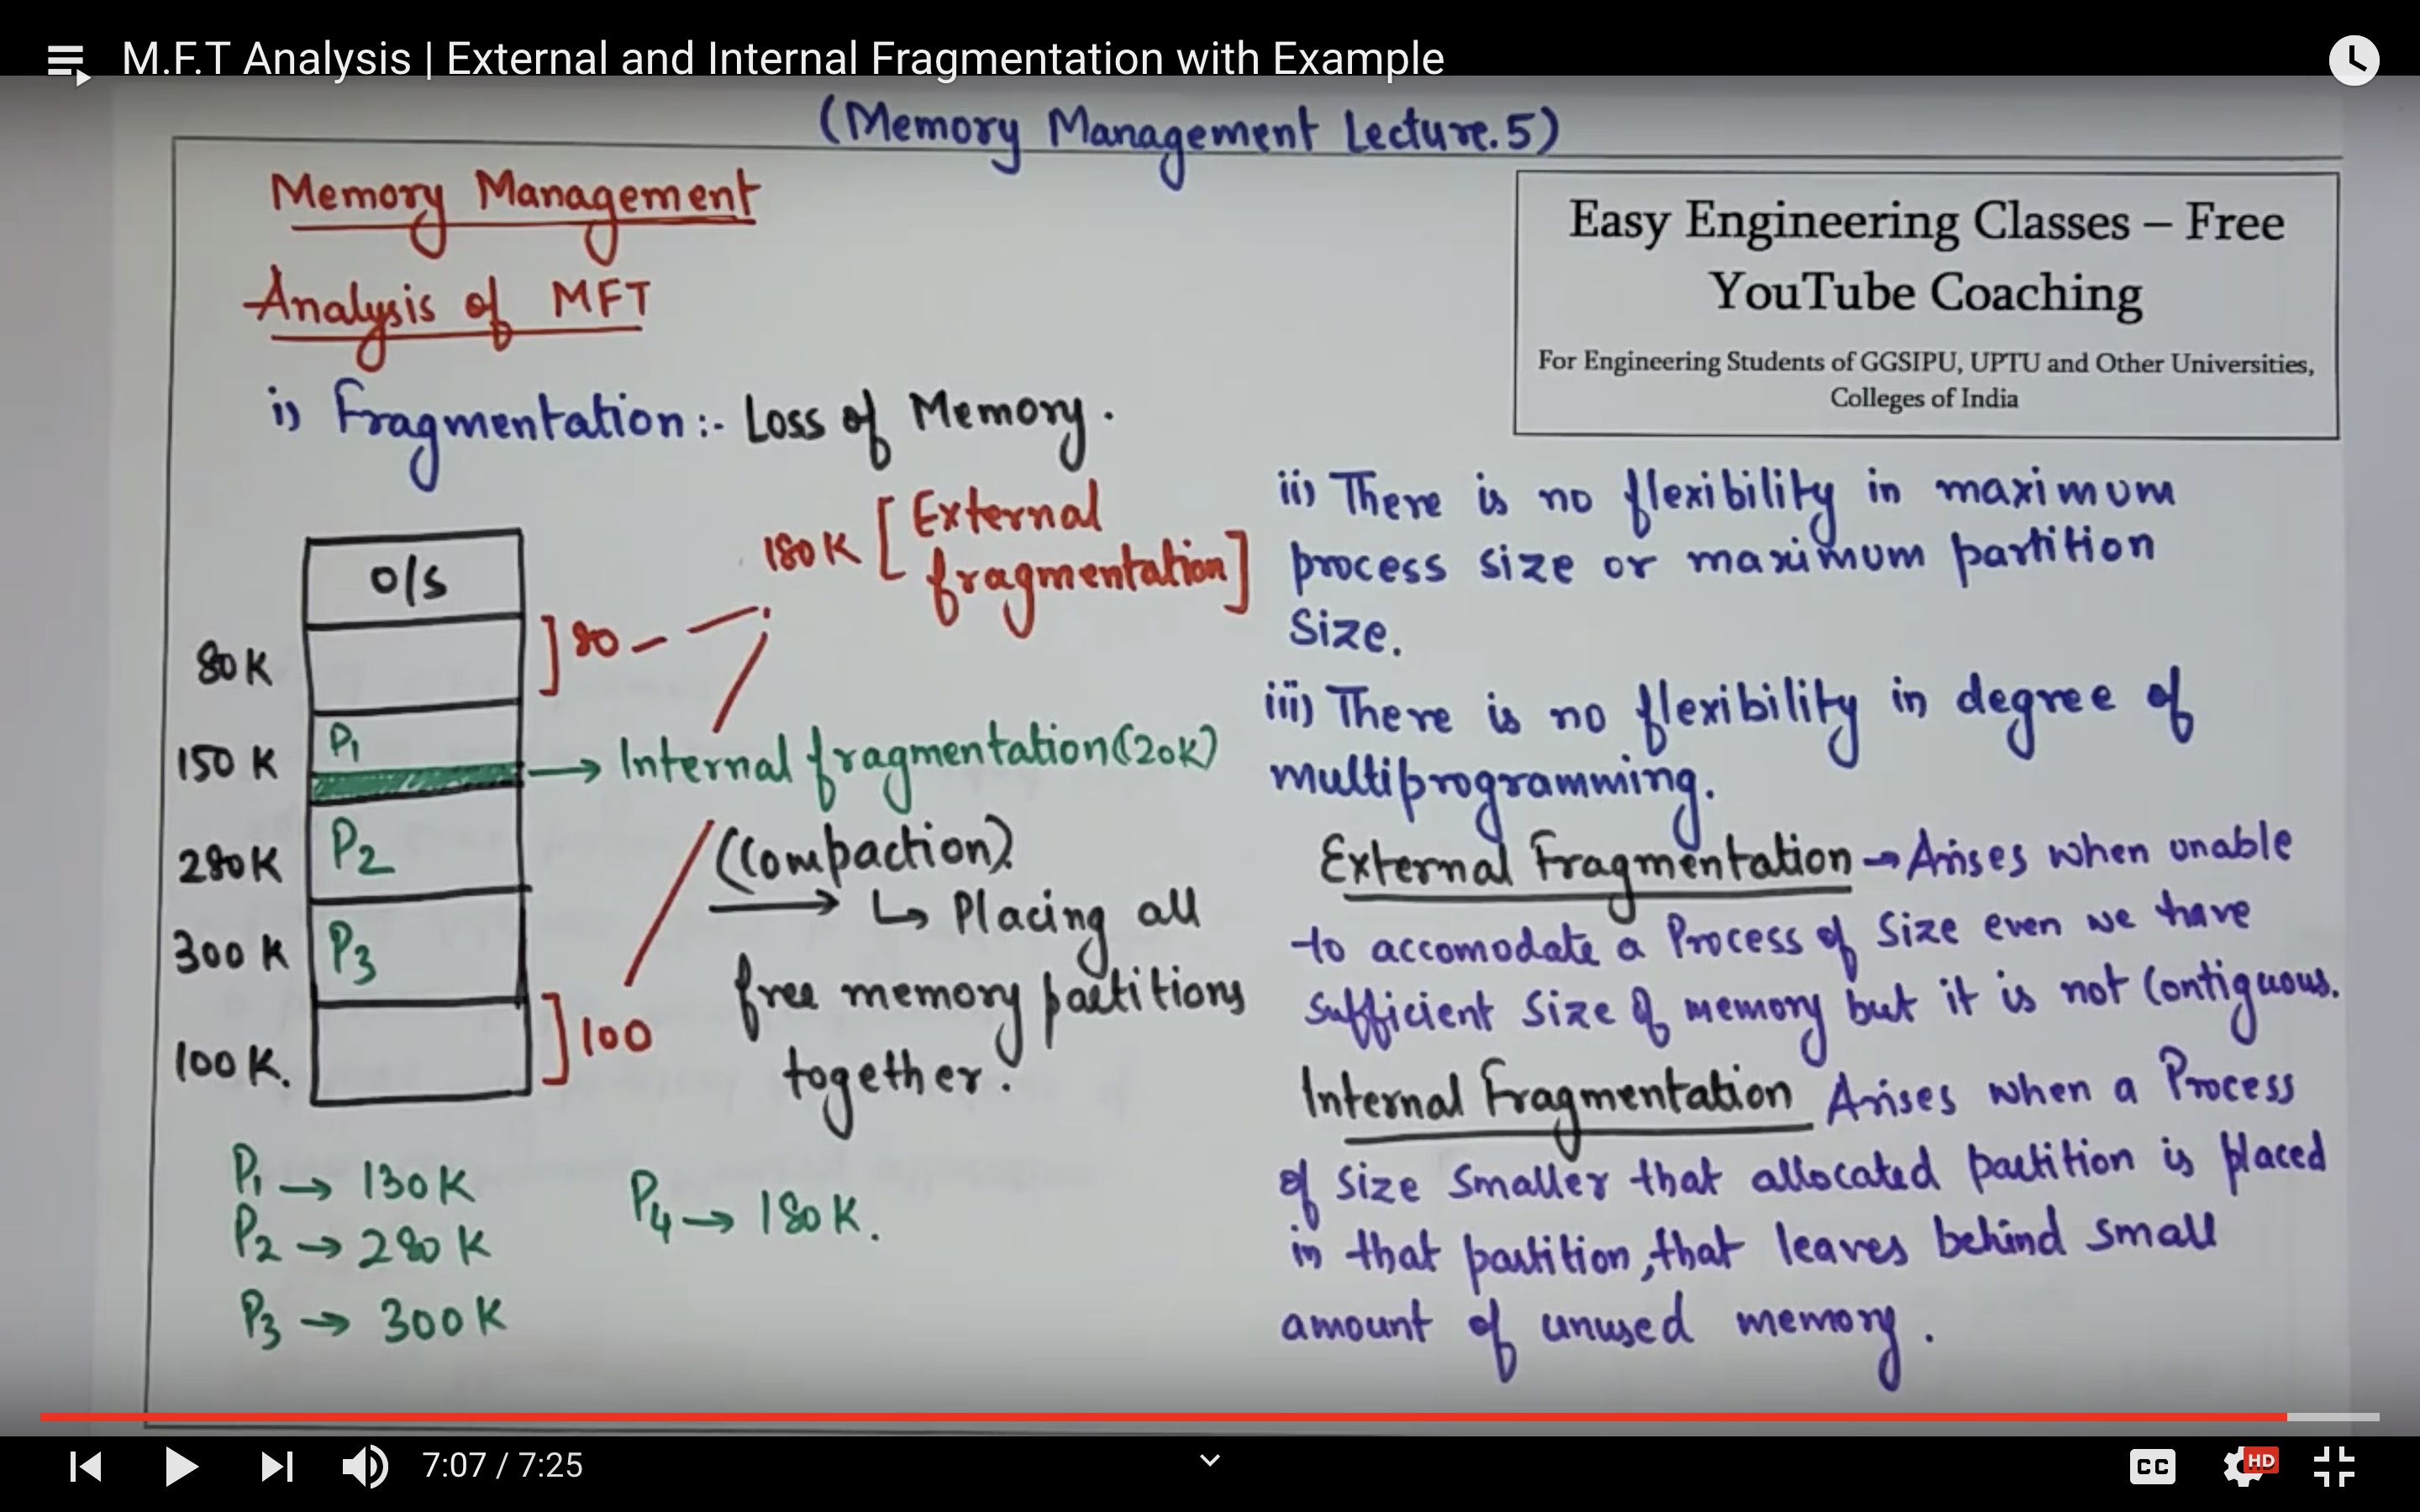 M.F.T Analysis | External and Internal Fragmentation with Example
(Memory Management Lecture.5)
Memory Management
Analysis of MFT
Easy Engineering Classes – Free
YouTube Coaching
For Engineering Students of GGSIPU, UPTU and Other Universities,
Colleges of India
i) Fragmentation:- Loss of Memory.
180K [External
fragmentation]
O/S
80K
]80
150 K
P1
Internal fragmentation(20K)
280K
P2
(Compaction)
↳ Placing all
free memory partitions
together.
300 K
P3
100 K.
]100
P1 → 130 K
P2 → 280 K
P3 → 300 K
P4 → 180 K.
ii) There is no flexibility in maximum
process size or maximum partition
Size.
iii) There is no flexibility in degree of
multiprogramming.
External Fragmentation → Arises when unable
to accomodate a Process of Size even we have
sufficient Size of memory but it is not Contiguous.
Internal Fragmentation Arises when a Process
of size smaller that allocated partition is placed
in that partition, that leaves behind small
amount of unused memory.
7:07 / 7:25
CC
HD